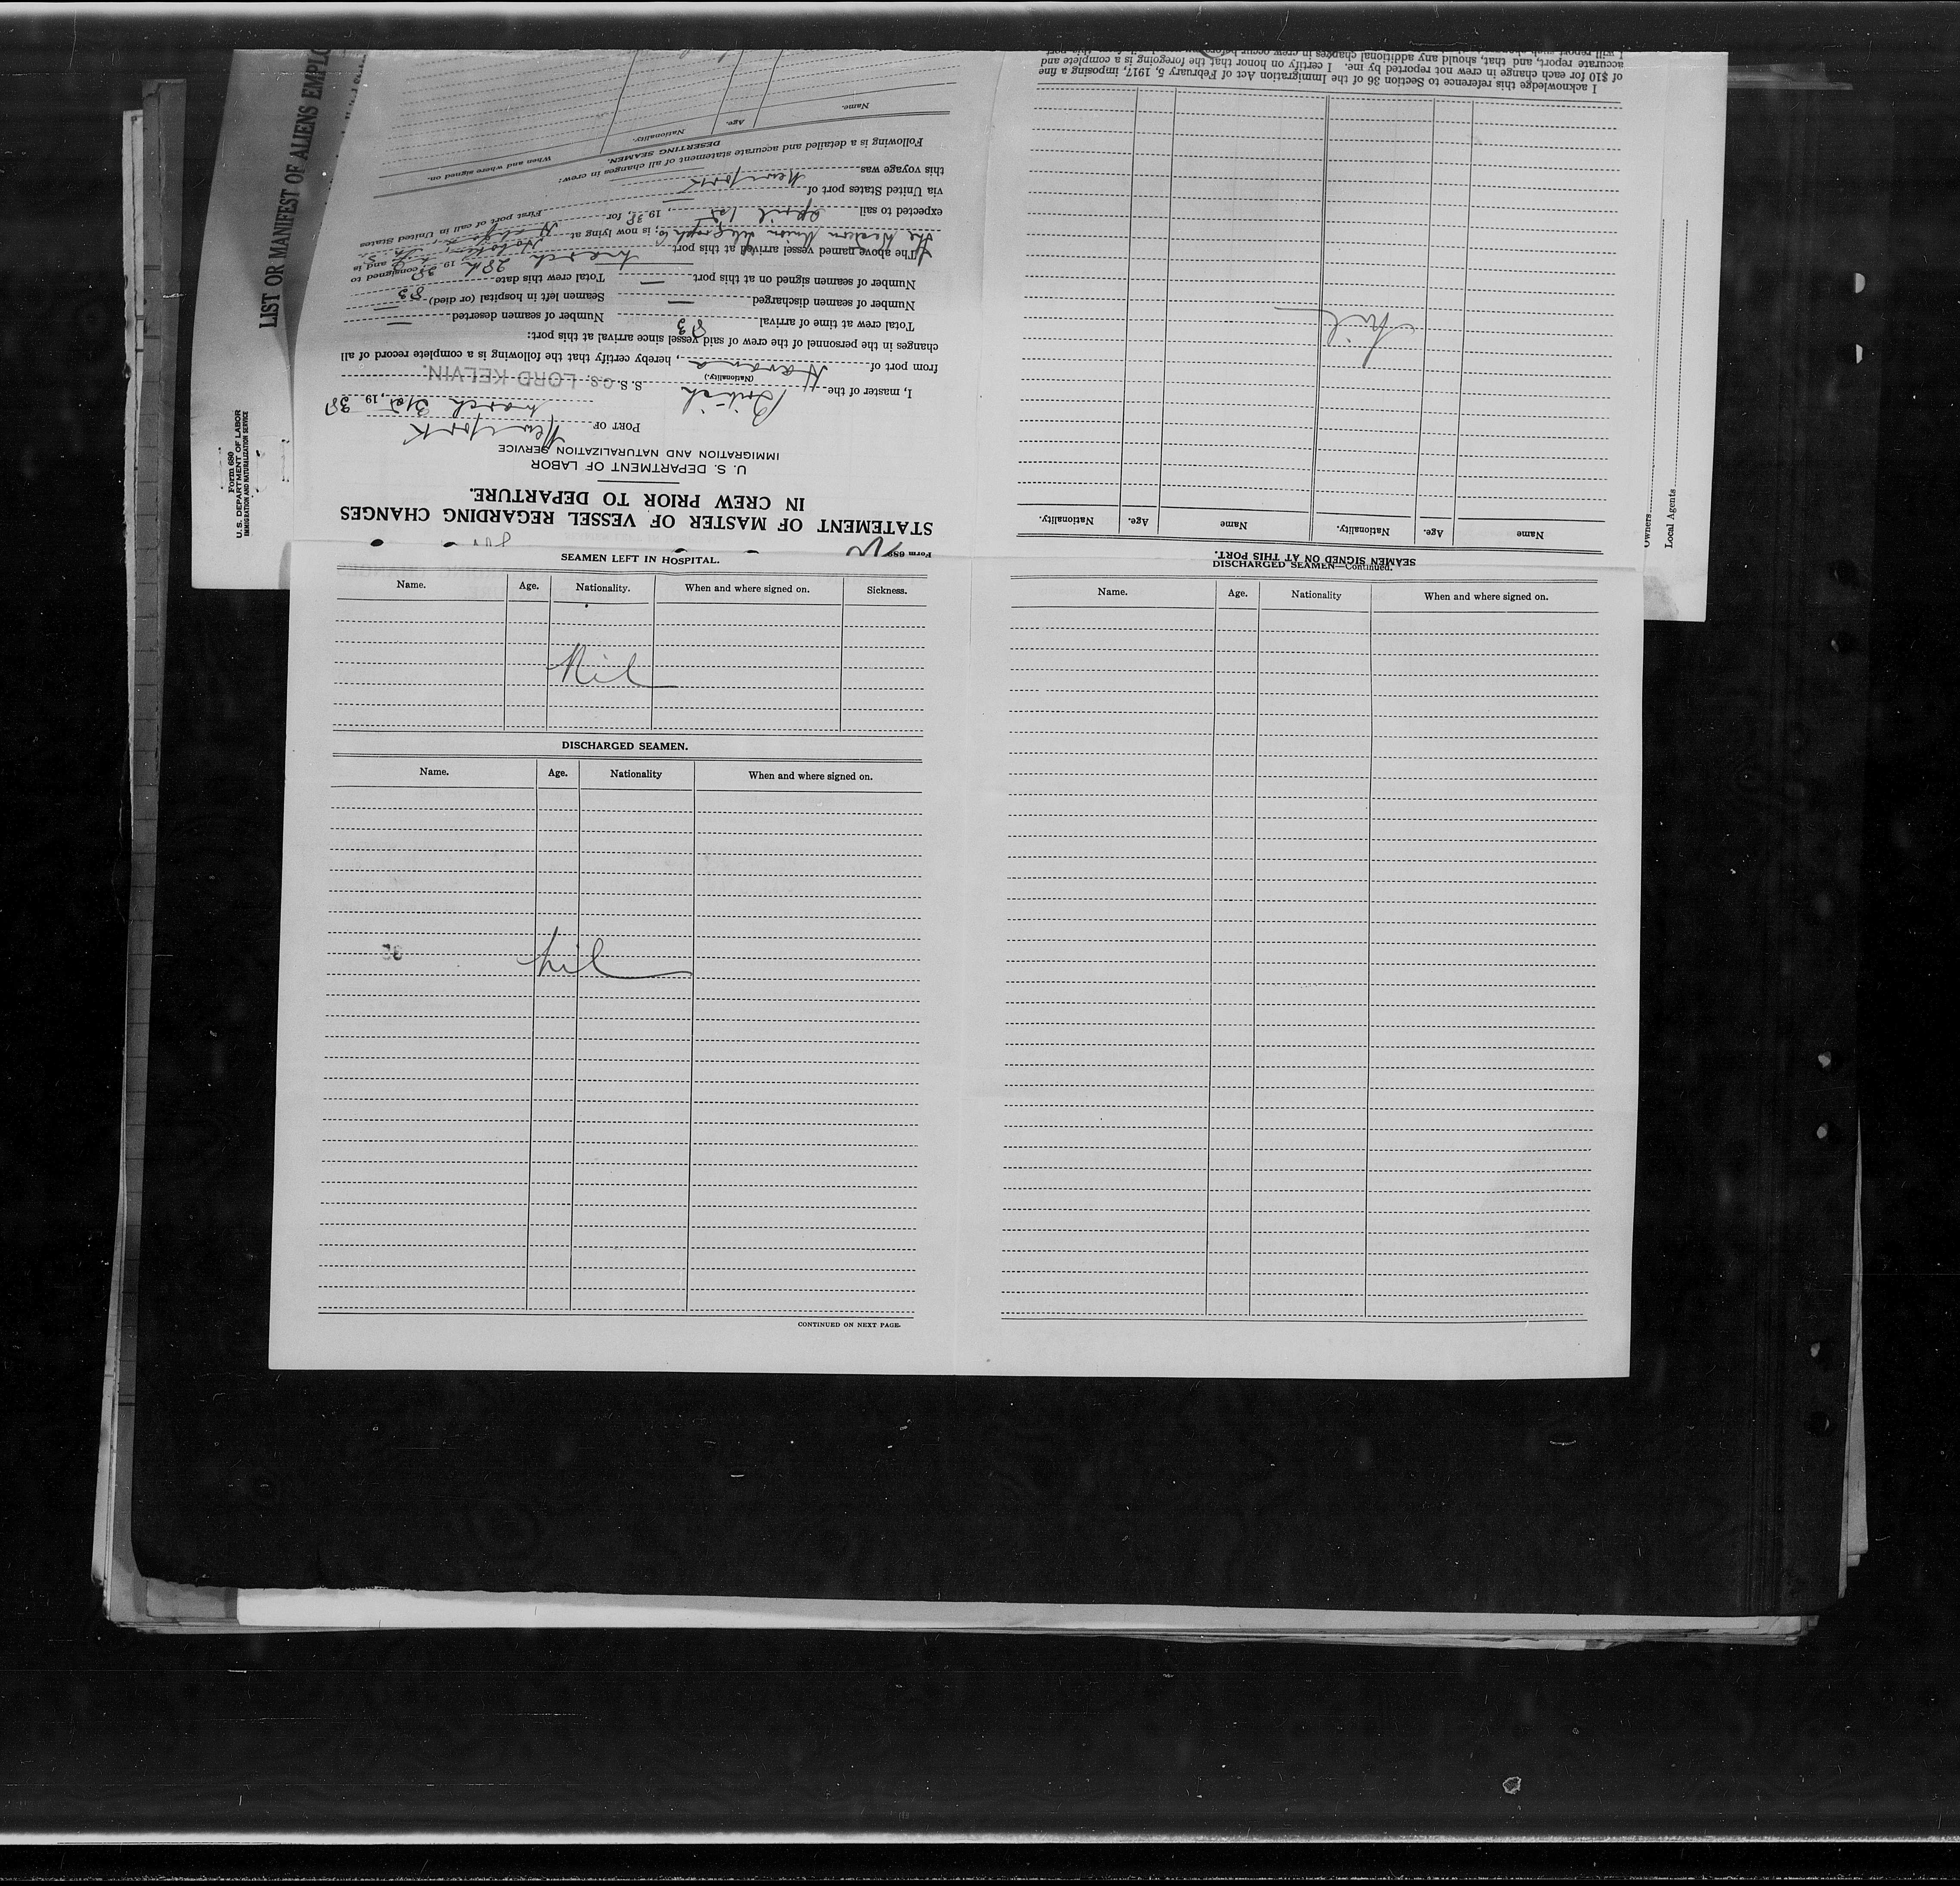 LIST OR MANIFEST OF ALIENS EMPLO
Form 680
U.S. DEPARTMENT OF LABOR
IMMIGRATION AND NATURALIZATION SERVICE
Form 689
STATEMENT OF MASTER OF VESSEL REGARDING CHANGES
IN CREW PRIOR TO DEPARTURE.
U. S. DEPARTMENT OF LABOR
IMMIGRATION AND NATURALIZATION SERVICE
PORT OF New York
March 31st, 1938
I, master of the British S. S. CS. LORD KELVIN.
(Nationality.)
from port of Havana, hereby certify that the following is a complete record of all
changes in the personnel of the crew of said vessel since arrival at this port:
Total crew at time of arrival 83 Number of seamen deserted —
Number of seamen discharged — Seamen left in hospital (or died) —
Number of seamen signed on at this port — Total crew this date 83
The above named vessel arrived at this port March 28th 1938 consigned to
The Western Union Telegraph Co; is now lying at Hoboken and is
expected to sail April 1st, 1938, for
via United States port of New York First port of call in United States
this voyage was
Following is a detailed and accurate statement of all changes in crew:
DESERTING SEAMEN.
Name. Age. Nationality. When and where signed on.
SEAMEN SIGNED ON AT THIS PORT.
Name Age. Nationality. Name Age. Nationality.
Nil
I acknowledge this reference to Section 36 of the Immigration Act of February 5, 1917, imposing a fine
of $10 for each change in crew not reported by me. I certify on honor that the foregoing is a complete and
accurate report, and that, should any additional changes in crew occur
Owners
Local Agents
SEAMEN LEFT IN HOSPITAL.
Name. Age. Nationality. When and where signed on. Sickness.
Nil
DISCHARGED SEAMEN.
Name. Age. Nationality When and where signed on.
Nil
CONTINUED ON NEXT PAGE.
DISCHARGED SEAMEN—Continued.
Name. Age. Nationality When and where signed on.